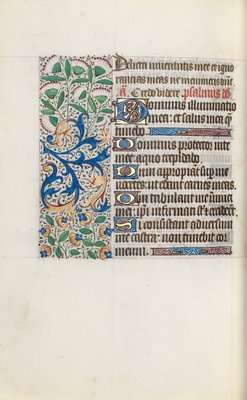 Delicta iuventutis mee et igno
rancias meas ne memineris dñe
A. Credo videre psalmus dd
Dominus illuminatio
mea: et salus mea q̄
timebo
Dominus protector vite
mee: a quo trepidabo
Dum appropiāt sup̄ me
nocētes: ut edant carnes meas
Qui tribulant me inimi
mei: ip̄i infirmati sūt & cecider̄
Si consistant adversum
me castra: non timebit cor
meum